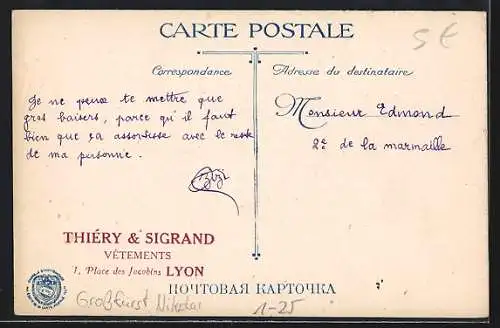 CARTE POSTALE
5 €
Correspondance
Adresse du destinataire
Je ne peux te mettre que
gros baisers, parce qu'il faut
bien que ça assortisse avec le reste
de ma personne.
Monsieur Edmond
2e de la marmaille
THIÉRY & SIGRAND
VÊTEMENTS
1, Place des Jacobins LYON
ПОЧТОВАЯ КАРТОЧКА
Großfürst Nikolai
1-25